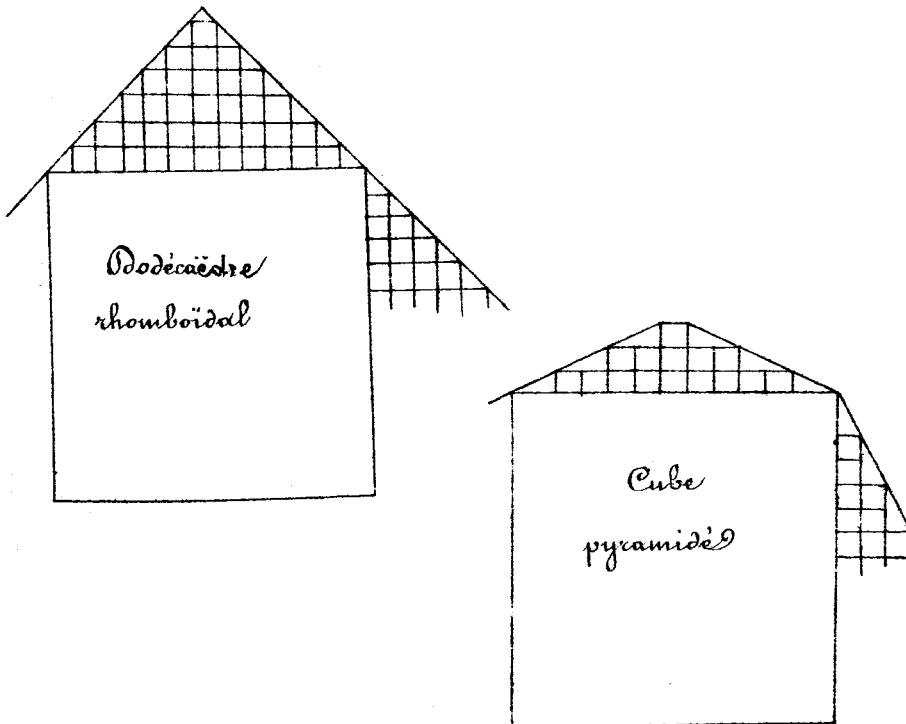 Dodécaëdre
rhomboïdal
Cube
pyramidé